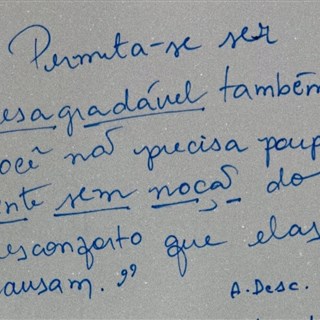 Permita-se ser
esagradável também
ocê não precisa poup
nte sem noção do
esconforto que elas
ausam.”
A. Desc.